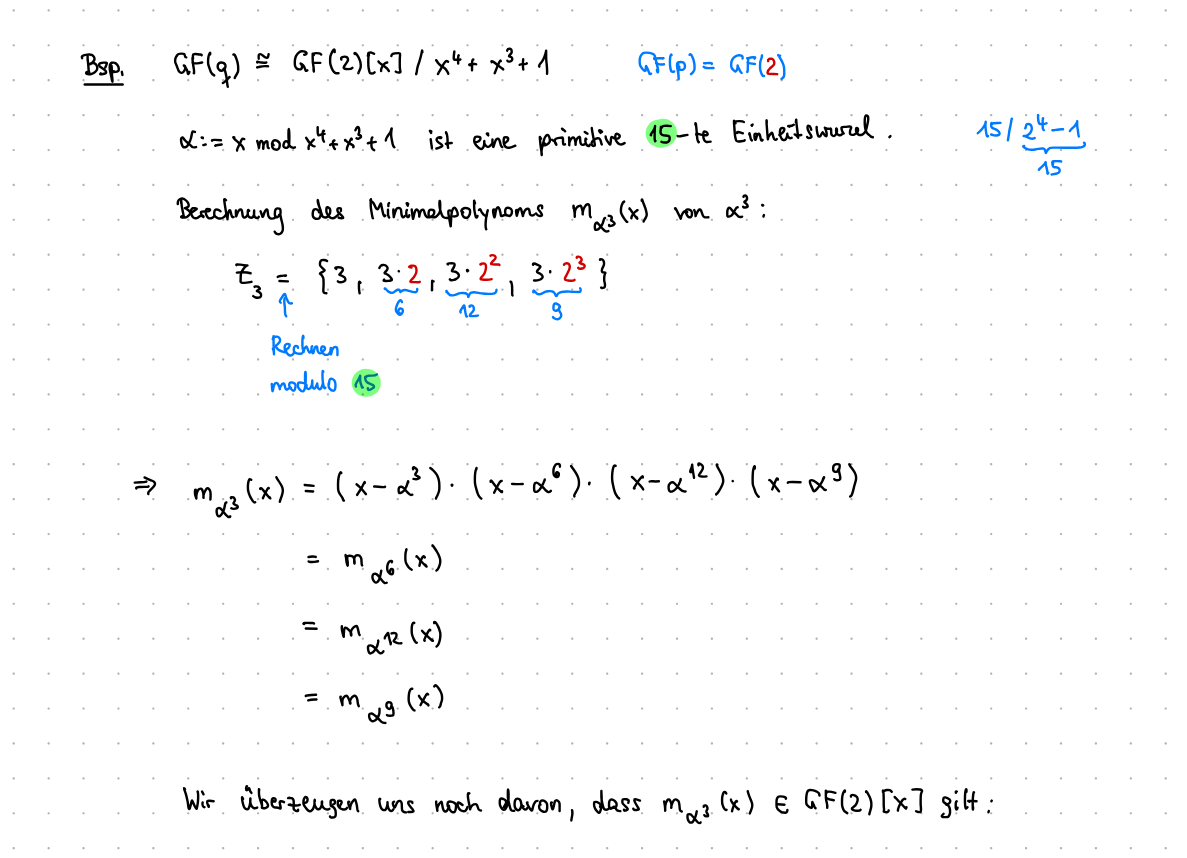 Bsp. GF(q) ≅ GF(2)[x] / x⁴ + x³ + 1 GF(p) = GF(2)
α := x mod x⁴ + x³ + 1 ist eine primitive 15-te Einheitswurzel. 15 / 2⁴ - 1
15
Berechnung des Minimalpolynoms m_α³(x) von α³ :
Z₃ = {3, 3·2, 3·2², 3·2³ }
↑ 6 12 9
Rechnen
modulo 15
⇒ m_α³(x) = (x - α³) · (x - α⁶) · (x - α¹²) · (x - α⁹)
= m_α⁶(x)
= m_α¹²(x)
= m_α⁹(x)
Wir überzeugen uns noch davon, dass m_α³(x) ∈ GF(2)[x] gilt: